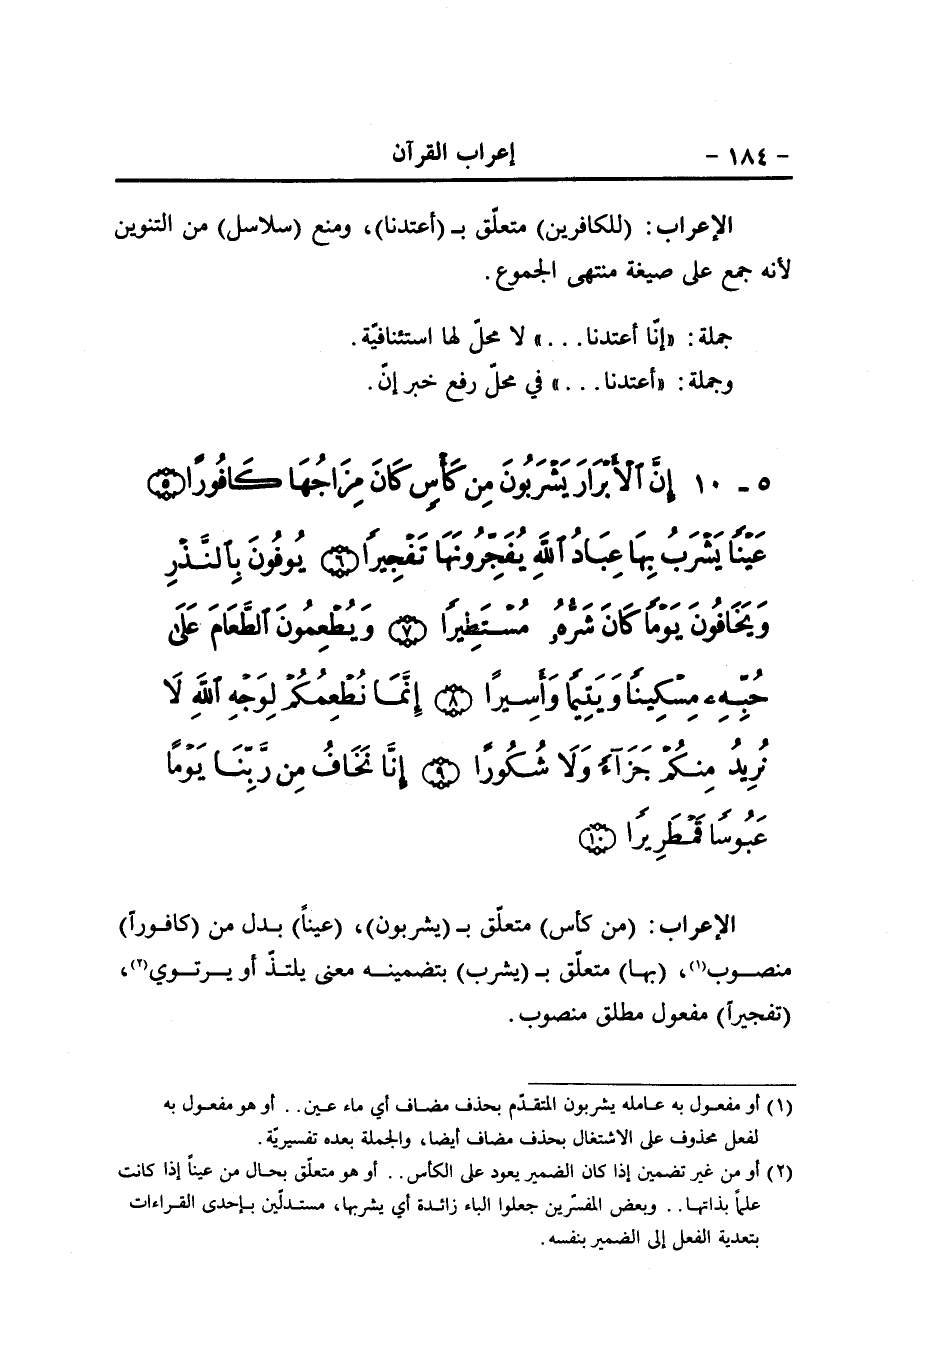 - ١٨٤ - إعراب القرآن
الإعراب: (للكافرين) متعلّق بـ (أعتدنا)، ومنع (سلاسل) من التنوين
لأنه جمع على صيغة منتهى الجموع.
جملة: «إنّا أعتدنا. . .» لا محلّ لها استئنافيّة.
وجملة: «أعتدنا. . .» في محلّ رفع خبر إنّ.
٥ - ١٠ إِنَّ ٱلْأَبْرَارَ يَشْرَبُونَ مِن كَأْسٍ كَانَ مِزَاجُهَا كَافُورًا ٥
عَيْنًا يَشْرَبُ بِهَا عِبَادُ ٱللَّهِ يُفَجِّرُونَهَا تَفْجِيرًا ٦ يُوفُونَ بِٱلنَّذْرِ
وَيَخَافُونَ يَوْمًا كَانَ شَرُّهُۥ مُسْتَطِيرًا ٧ وَيُطْعِمُونَ ٱلطَّعَامَ عَلَىٰ
حُبِّهِۦ مِسْكِينًا وَيَتِيمًا وَأَسِيرًا ٨ إِنَّمَا نُطْعِمُكُمْ لِوَجْهِ ٱللَّهِ لَا
نُرِيدُ مِنكُمْ جَزَآءً وَلَا شُكُورًا ٩ إِنَّا نَخَافُ مِن رَّبِّنَا يَوْمًا
عَبُوسًا قَمْطَرِيرًا ١٠
الإعراب: (من كأس) متعلّق بـ (يشربون)، (عيناً) بدل من (كافوراً)
منصوب(١)، (بها) متعلّق بـ (يشرب) بتضمينه معنى يلتذّ أو يرتوي(٢)،
(تفجيراً) مفعول مطلق منصوب.
(١) أو مفعول به عامله يشربون المتقدّم بحذف مضاف أي ماء عين. . أو هو مفعول به
لفعل محذوف على الاشتغال بحذف مضاف أيضا، والجملة بعده تفسيريّة.
(٢) أو من غير تضمين إذا كان الضمير يعود على الكأس. . أو هو متعلّق بحال من عيناً إذا كانت
علماً بذاتها. . وبعض المفسّرين جعلوا الباء زائدة أي يشربها، مستدلّين بإحدى القراءات
بتعدية الفعل إلى الضمير بنفسه.